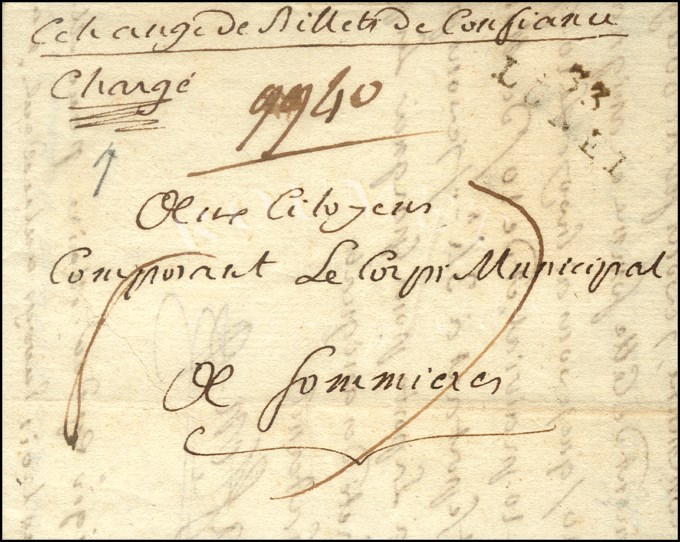 Echange de Billets de Confiance
Chargé
9940
33
LUNEL
Aux Citoyens
Composant Le Corps Municipal
A Sommieres